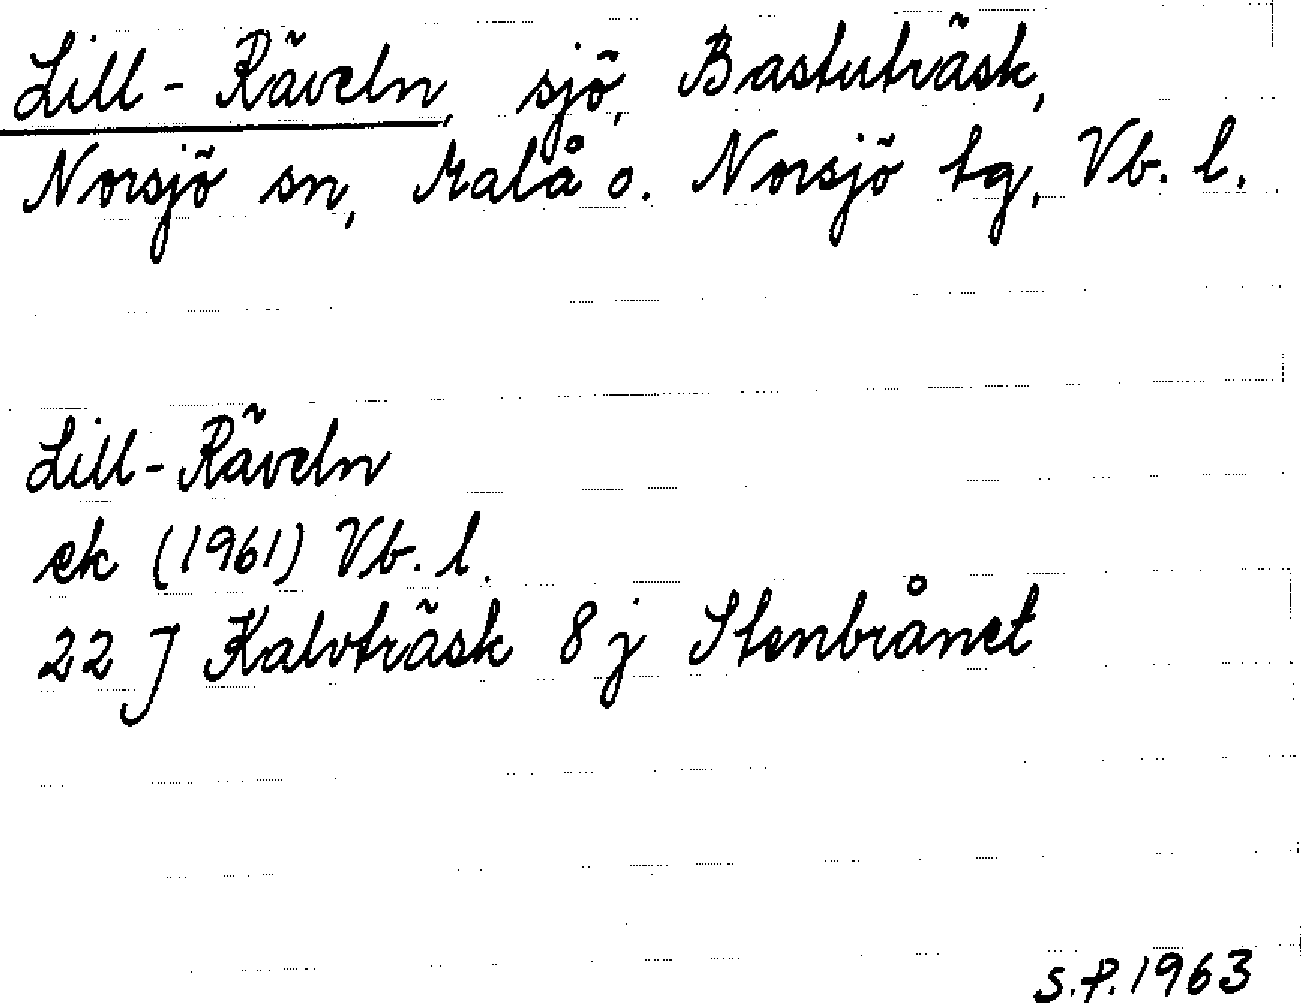 Lill-Räveln, sjö, Bastuträsk,
Norsjö sn, Malå o. Norsjö tg, Vb. l.
Lill-Räveln
ek (1961) Vb. l.
22 J Kalvträsk 8 j Stenbrånet
S.P. 1963